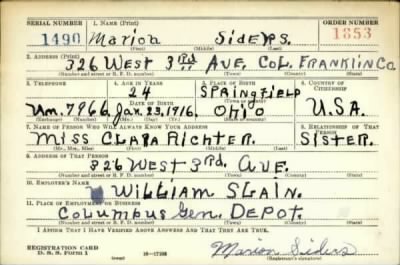 SERIAL NUMBER 1. NAME (Print) ORDER NUMBER
1490 Marion Siders. 1653
(First) (Middle) (Last)
2. ADDRESS (Print)
326 West 3rd Ave, Col. Franklin Co
(Number and street or R. F. D. number) (Town) (County) (State)
3. TELEPHONE 4. AGE IN YEARS 5. PLACE OF BIRTH 6. COUNTRY OF CITIZENSHIP
24 Springfield
Un. 7966. DATE OF BIRTH Jan. 23, 1916. Ohio U.S.A.
(Exchange) (Number) (Mo.) (Day) (Yr.) (State or country)
7. NAME OF PERSON WHO WILL ALWAYS KNOW YOUR ADDRESS 8. RELATIONSHIP OF THAT PERSON
Miss Clara Richter. Sister.
(Mr., Mrs., Miss) (First) (Middle) (Last)
9. ADDRESS OF THAT PERSON
326 West 3rd. Ave.
(Number and street or R. F. D. number) (Town) (County) (State)
10. EMPLOYER'S NAME
William Slain.
11. PLACE OF EMPLOYMENT OR BUSINESS
Columbus Gen. Depot.
(Number and street or R. F. D. number) (Town) (County) (State)
I AFFIRM THAT I HAVE VERIFIED ABOVE ANSWERS AND THAT THEY ARE TRUE.
REGISTRATION CARD
D. S. S. Form 1 16-17105 Marion Siders
(Registrant's signature)